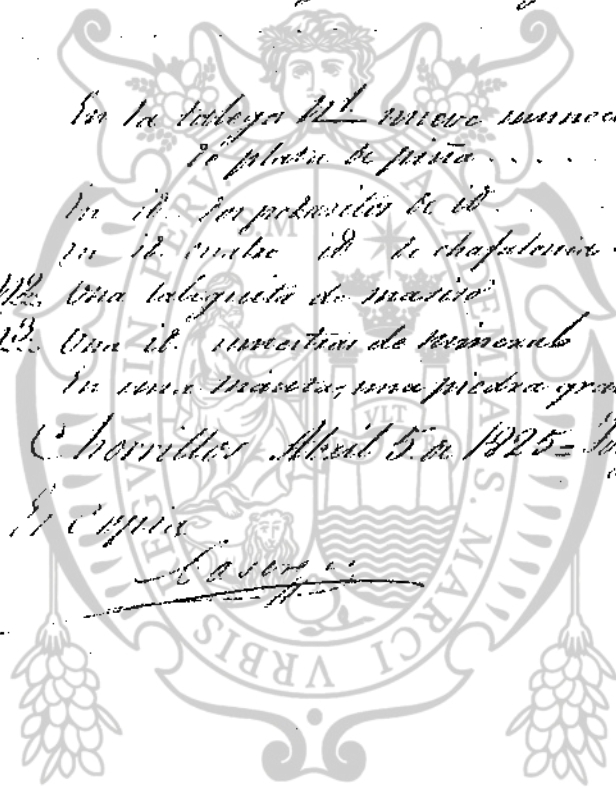 En la talega N1 nueve muneca
de plata de piña . . . . .
En id. dos pedasitos de id . .
En id. cuatro id de chafalonia
N2. Una taleguita de masiso
N3. Una id. muestras de mineral
En una maceta, una piedra gran
Chorrillos Abril 5 de 1825=
Es Copia